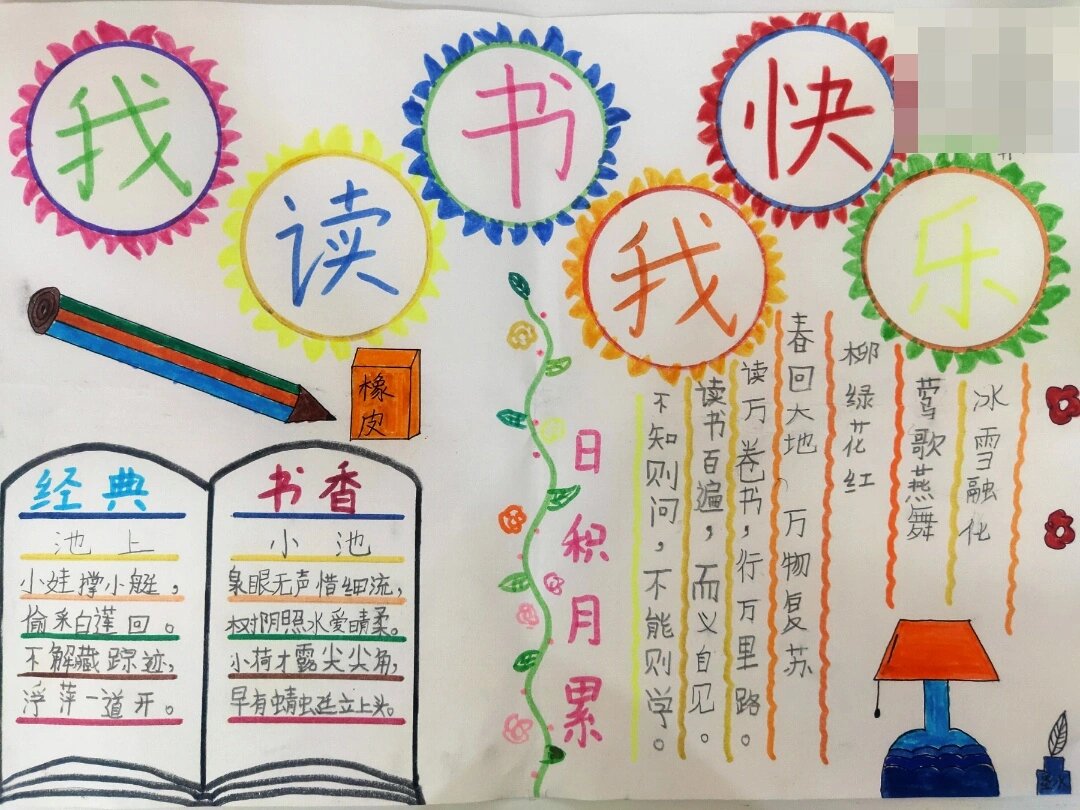 我读书我快乐
橡皮
经典
池上
小娃撑小艇，
偷采白莲回。
不解藏踪迹，
浮萍一道开。
书香
小池
泉眼无声惜细流，
树阴照水爱晴柔。
小荷才露尖尖角，
早有蜻蜓立上头。
日积月累
不知则问，不能则学。
读书百遍，而义自见。
读万卷书，行万里路。
春回大地 万物复苏
柳绿花红
莺歌燕舞
冰雪融化
墨水